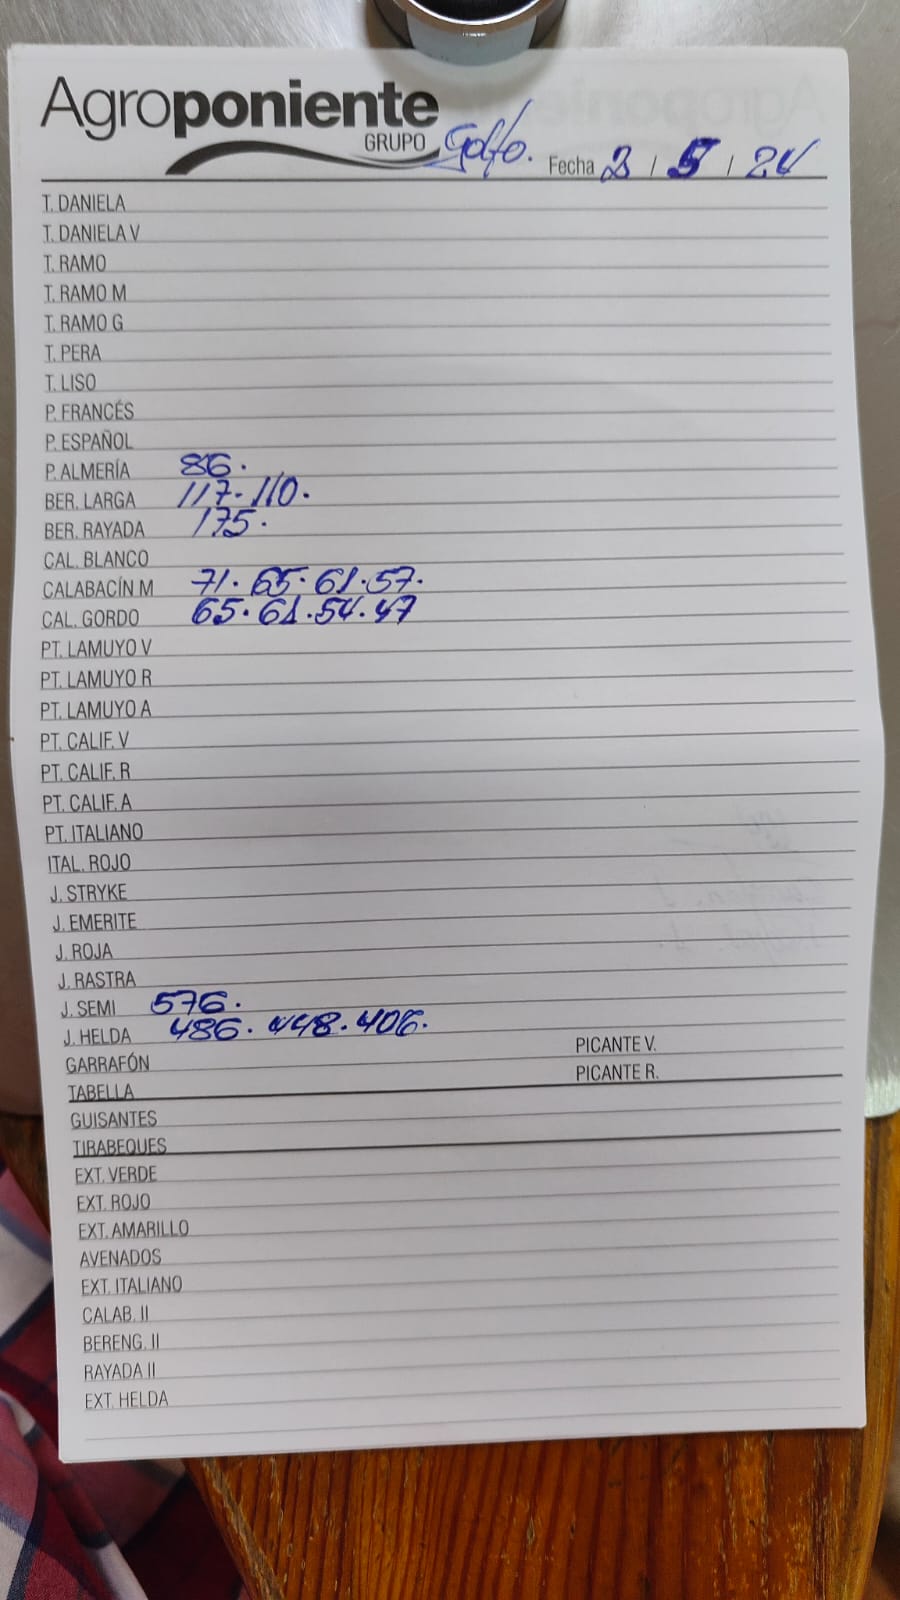 Agroponiente
GRUPO Golfo. Fecha 3 / 5 / 24
T. DANIELA
T. DANIELA V
T. RAMO
T. RAMO M
T. RAMO G
T. PERA
T. LISO
P. FRANCÉS
P. ESPAÑOL
P. ALMERÍA 86.
BER. LARGA 117. 110.
BER. RAYADA 175.
CAL. BLANCO
CALABACÍN M 71. 65. 61. 57.
CAL. GORDO 65. 61. 54. 47
PT. LAMUYO V
PT. LAMUYO R
PT. LAMUYO A
PT. CALIF. V
PT. CALIF. R
PT. CALIF. A
PT. ITALIANO
ITAL. ROJO
J. STRYKE
J. EMERITE
J. ROJA
J. RASTRA
J. SEMI 576.
J. HELDA 486. 448. 406.
GARRAFÓN PICANTE V.
TABELLA PICANTE R.
GUISANTES
TIRABEQUES
EXT. VERDE
EXT. ROJO
EXT. AMARILLO
AVENADOS
EXT. ITALIANO
CALAB. II
BERENG. II
RAYADA II
EXT. HELDA